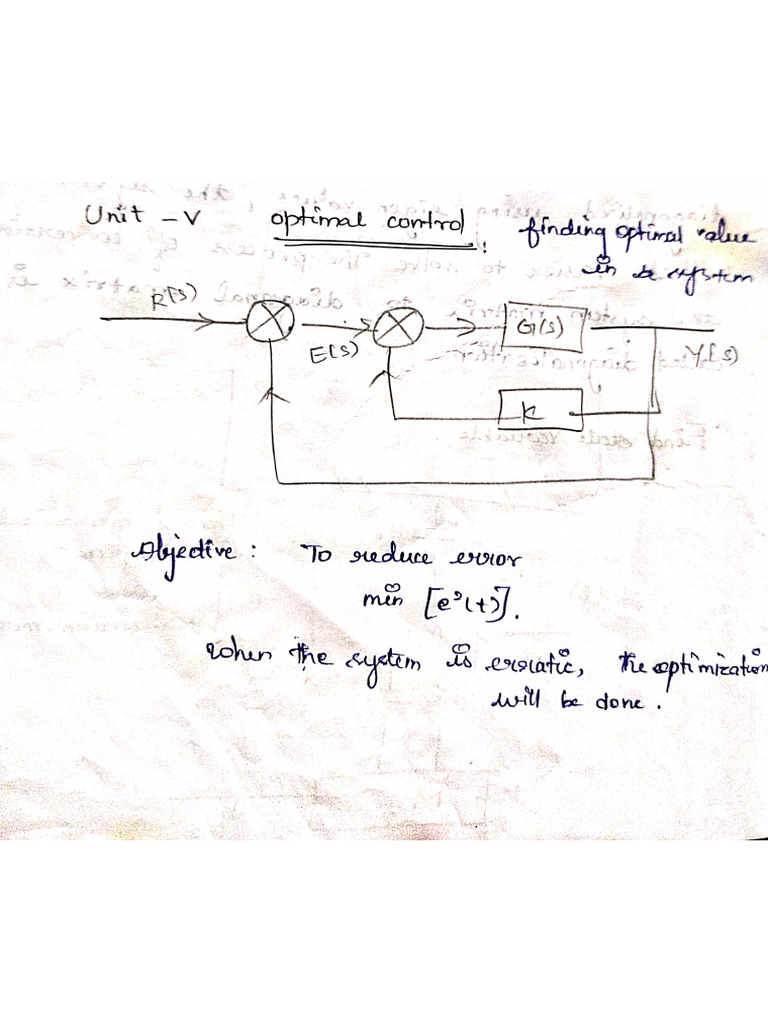 Unit - V optimal control : finding optimal value
in a system
R(s)
E(s)
G(s)
Y(s)
K
Objective : To reduce error
min [e²(t)].
When the system is erratic, the optimization
will be done.